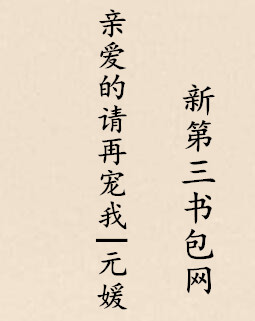 新第三书包网
亲爱的请再宠我|元媛